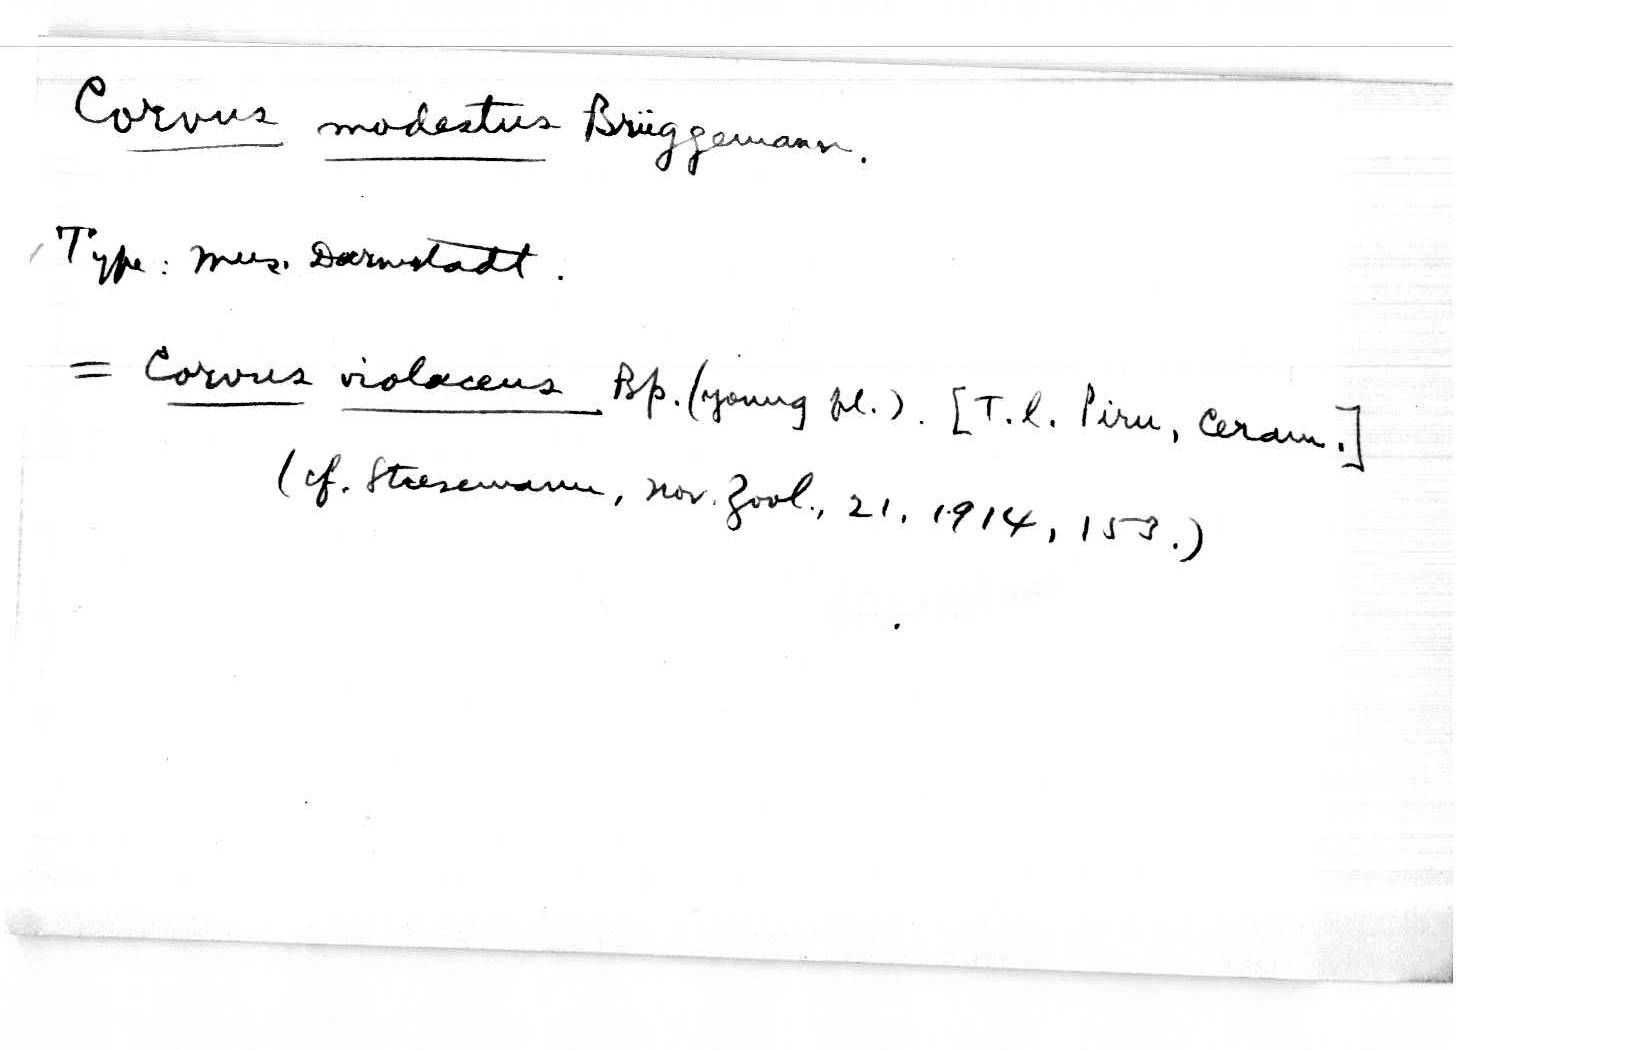 Corvus modestus Brüggemann.
Type: Mus. Darmstadt.
= Corvus violaceus Bp. (young pl.). [T.l. Piru, Ceram.]
(cf. Stresemann, Nov. Zool., 21, 1914, 153.)